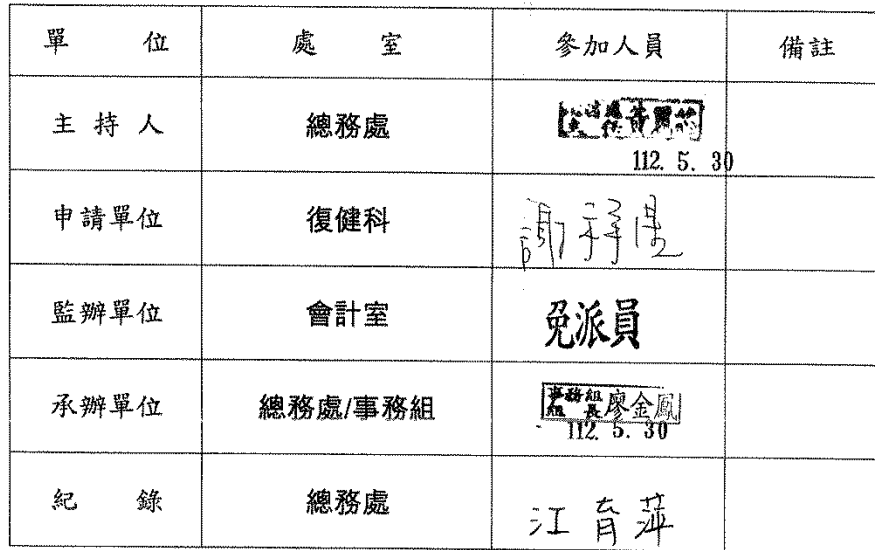 單 位 處 室 參加人員 備註
主 持 人 總務處
112. 5. 30
申請單位 復健科 謝祥
監辦單位 會計室 免派員
承辦單位 總務處/事務組 事務組組長 廖金鳳
112. 5. 30
紀 錄 總務處 江育萍